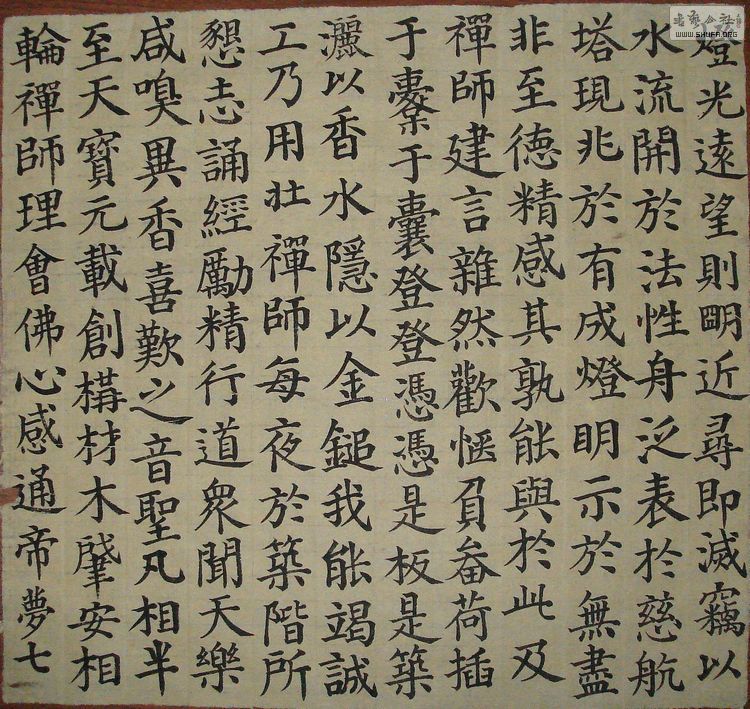 燈光遠望則明近尋即滅竊以
水流開於法性身泛表於慈航
塔現兆於有成燈明示於無盡
非至德精感其孰能與於此及
禪師建言雜然歡愜負畚荷插
于橐于囊登登憑憑是板是築
灑以香水隱以金鎚我能竭誠
工乃用壯禪師每夜於築階所
懇志誦經勵精行道眾聞天樂
咸嗅異香喜歎之音聖凡相半
至天寶元載創構材木肇安相
輪禪師理會佛心感通帝夢七
书艺公社
WWW.SHUFA.ORG